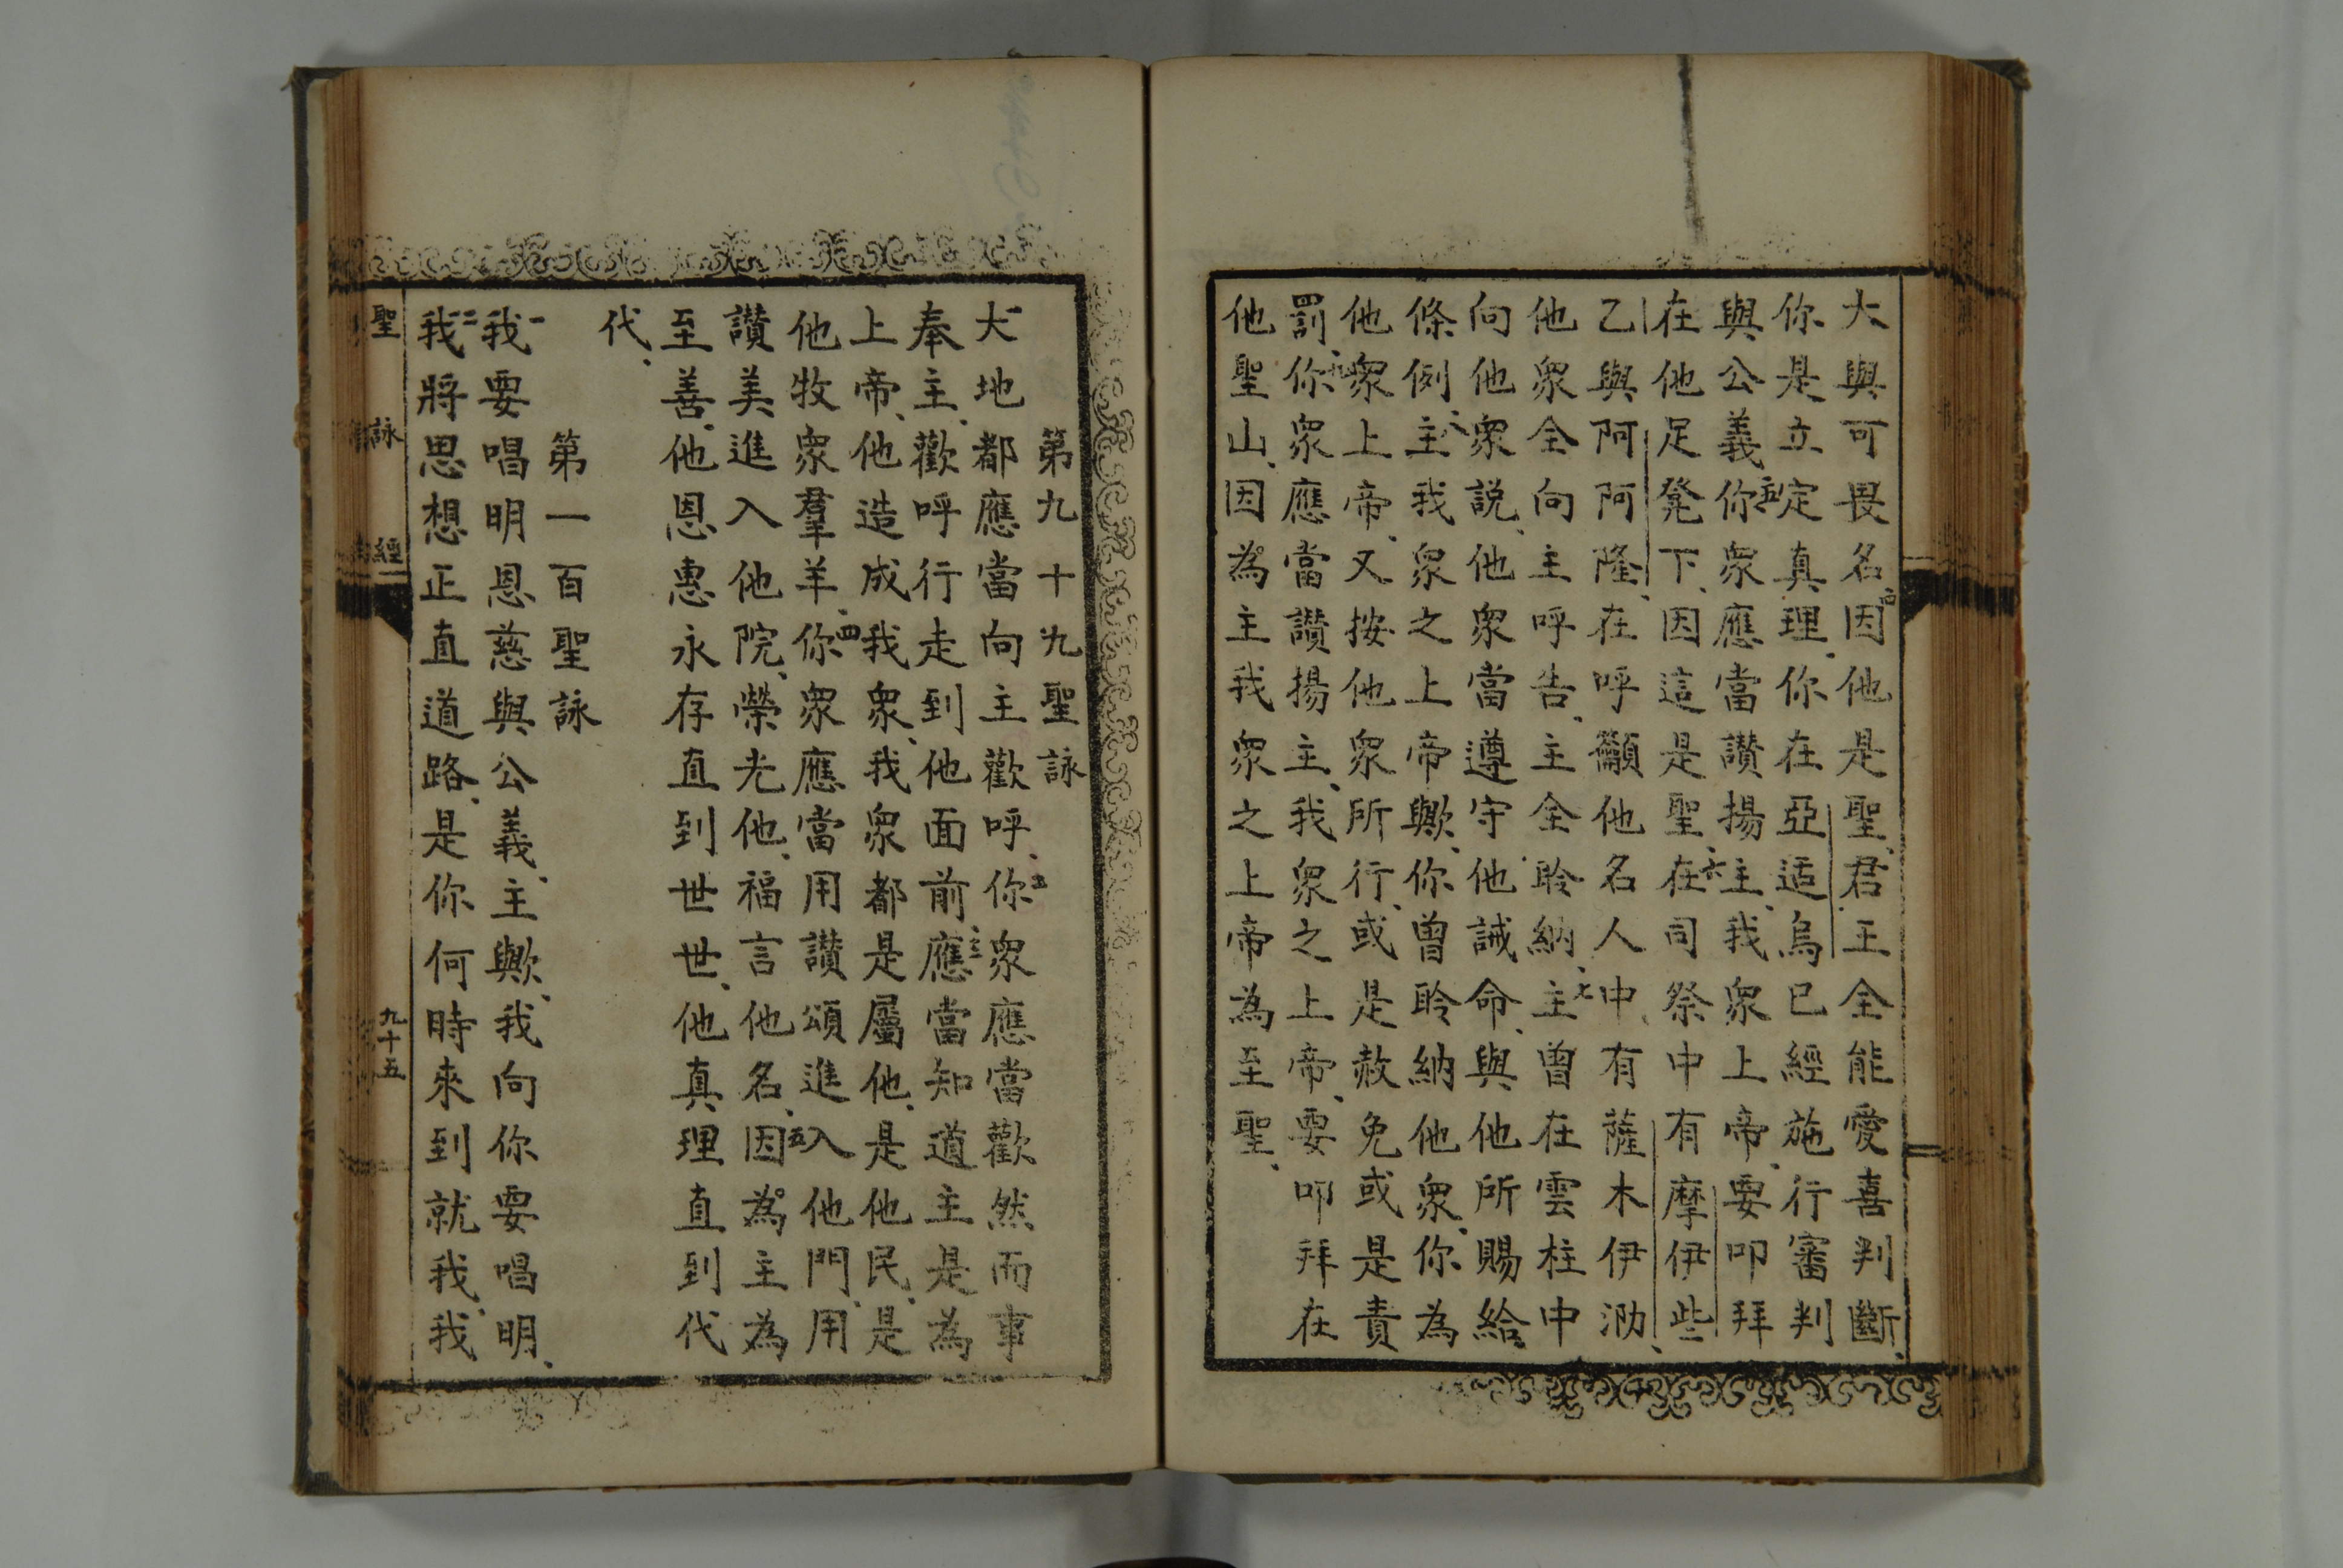 大與可畏名、四因他是聖、君王全能愛喜判斷、
你是立定真理、你在亞适烏已經施行審判
與公義、五你衆應當讚揚主、我衆上帝、要叩拜
在他足凳下、因這是聖、六在司祭中有摩伊些
乙與阿阿隆、在呼籲他名人中、有薩木伊泐、
他衆全向主呼告、主全聆納、七主曾在雲柱中
向他衆説、他衆當遵守他誡命、與他所賜給
條例、八主我衆之上帝歟、你曾聆納他衆、你為
他衆上帝、又按他衆所行、或是赦免或是責
罰、九你衆應當讚揚主、我衆之上帝、要叩拜在
他聖山、因為主我衆之上帝為至聖、
第九十九聖詠
一大地都應當向主歡呼、二你衆應當歡然而事
奉主、歡呼行走到他面前、三應當知道主是為
上帝、他造成我衆、我衆都是屬他、是他民、是
他牧衆羣羊、四你衆應當用讚頌進入他門、用
讚美進入他院、榮光他、福言他名、五因為主為
至善、他恩惠永存直到世世、他真理直到代
代、
第一百聖詠
一我要唱明恩慈與公義、主歟、我向你要唱明、
二我將思想正直道路、是你何時來到就我、我
聖詠經
九十五